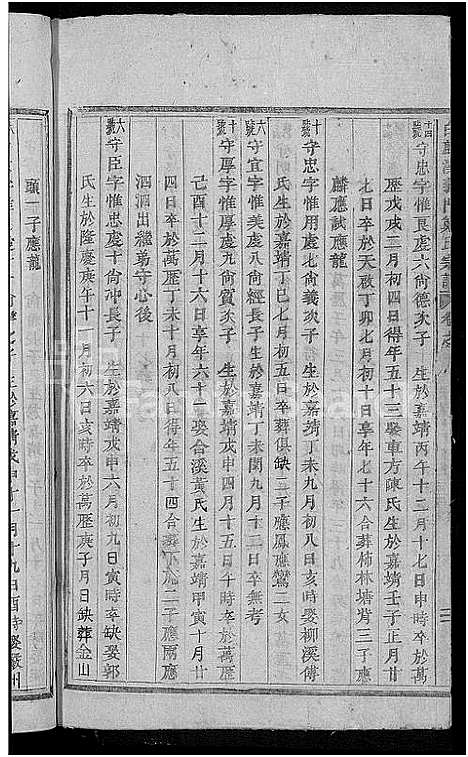 十四號守忠字惟良處六尚德次子　生於嘉靖丙午十二月十七日申時卒於萬
歷戊戌三月初四日得年五十三娶車方陳氏生於嘉靖壬子正月廿
七日卒於天啟丁卯七月初九日享年七十六合葬柿林塘肖三子應
麟應試應龍
十號守忠字惟用處十尚義次子　生於嘉靖丁未九月初八日亥時娶柳溪傅
氏生於嘉靖丁巳七月初五日卒葬俱缺三子應鳳應鸞二女
六號守宜字惟美處八尚經長子　生於嘉靖丁未閏九月十二日卒無考
十號守厚字惟厚處九尚質次子　生於嘉靖戊申四月十五日午時卒於萬歷
己酉十二月十六日享年六十二娶合溪黃氏生於嘉靖甲寅十月廿
四日卒於萬歷丁未十月初四日得年五十四合葬下施二子應兩應
泗泗出繼弟守心後
六號守臣字惟忠處十尚沖長子　生於嘉靖戊申六月初九日寅時卒缺娶郭
氏生於隆慶庚午十一月初六日亥時卒於萬歷庚子月日缺葬金山
頭一子應龍